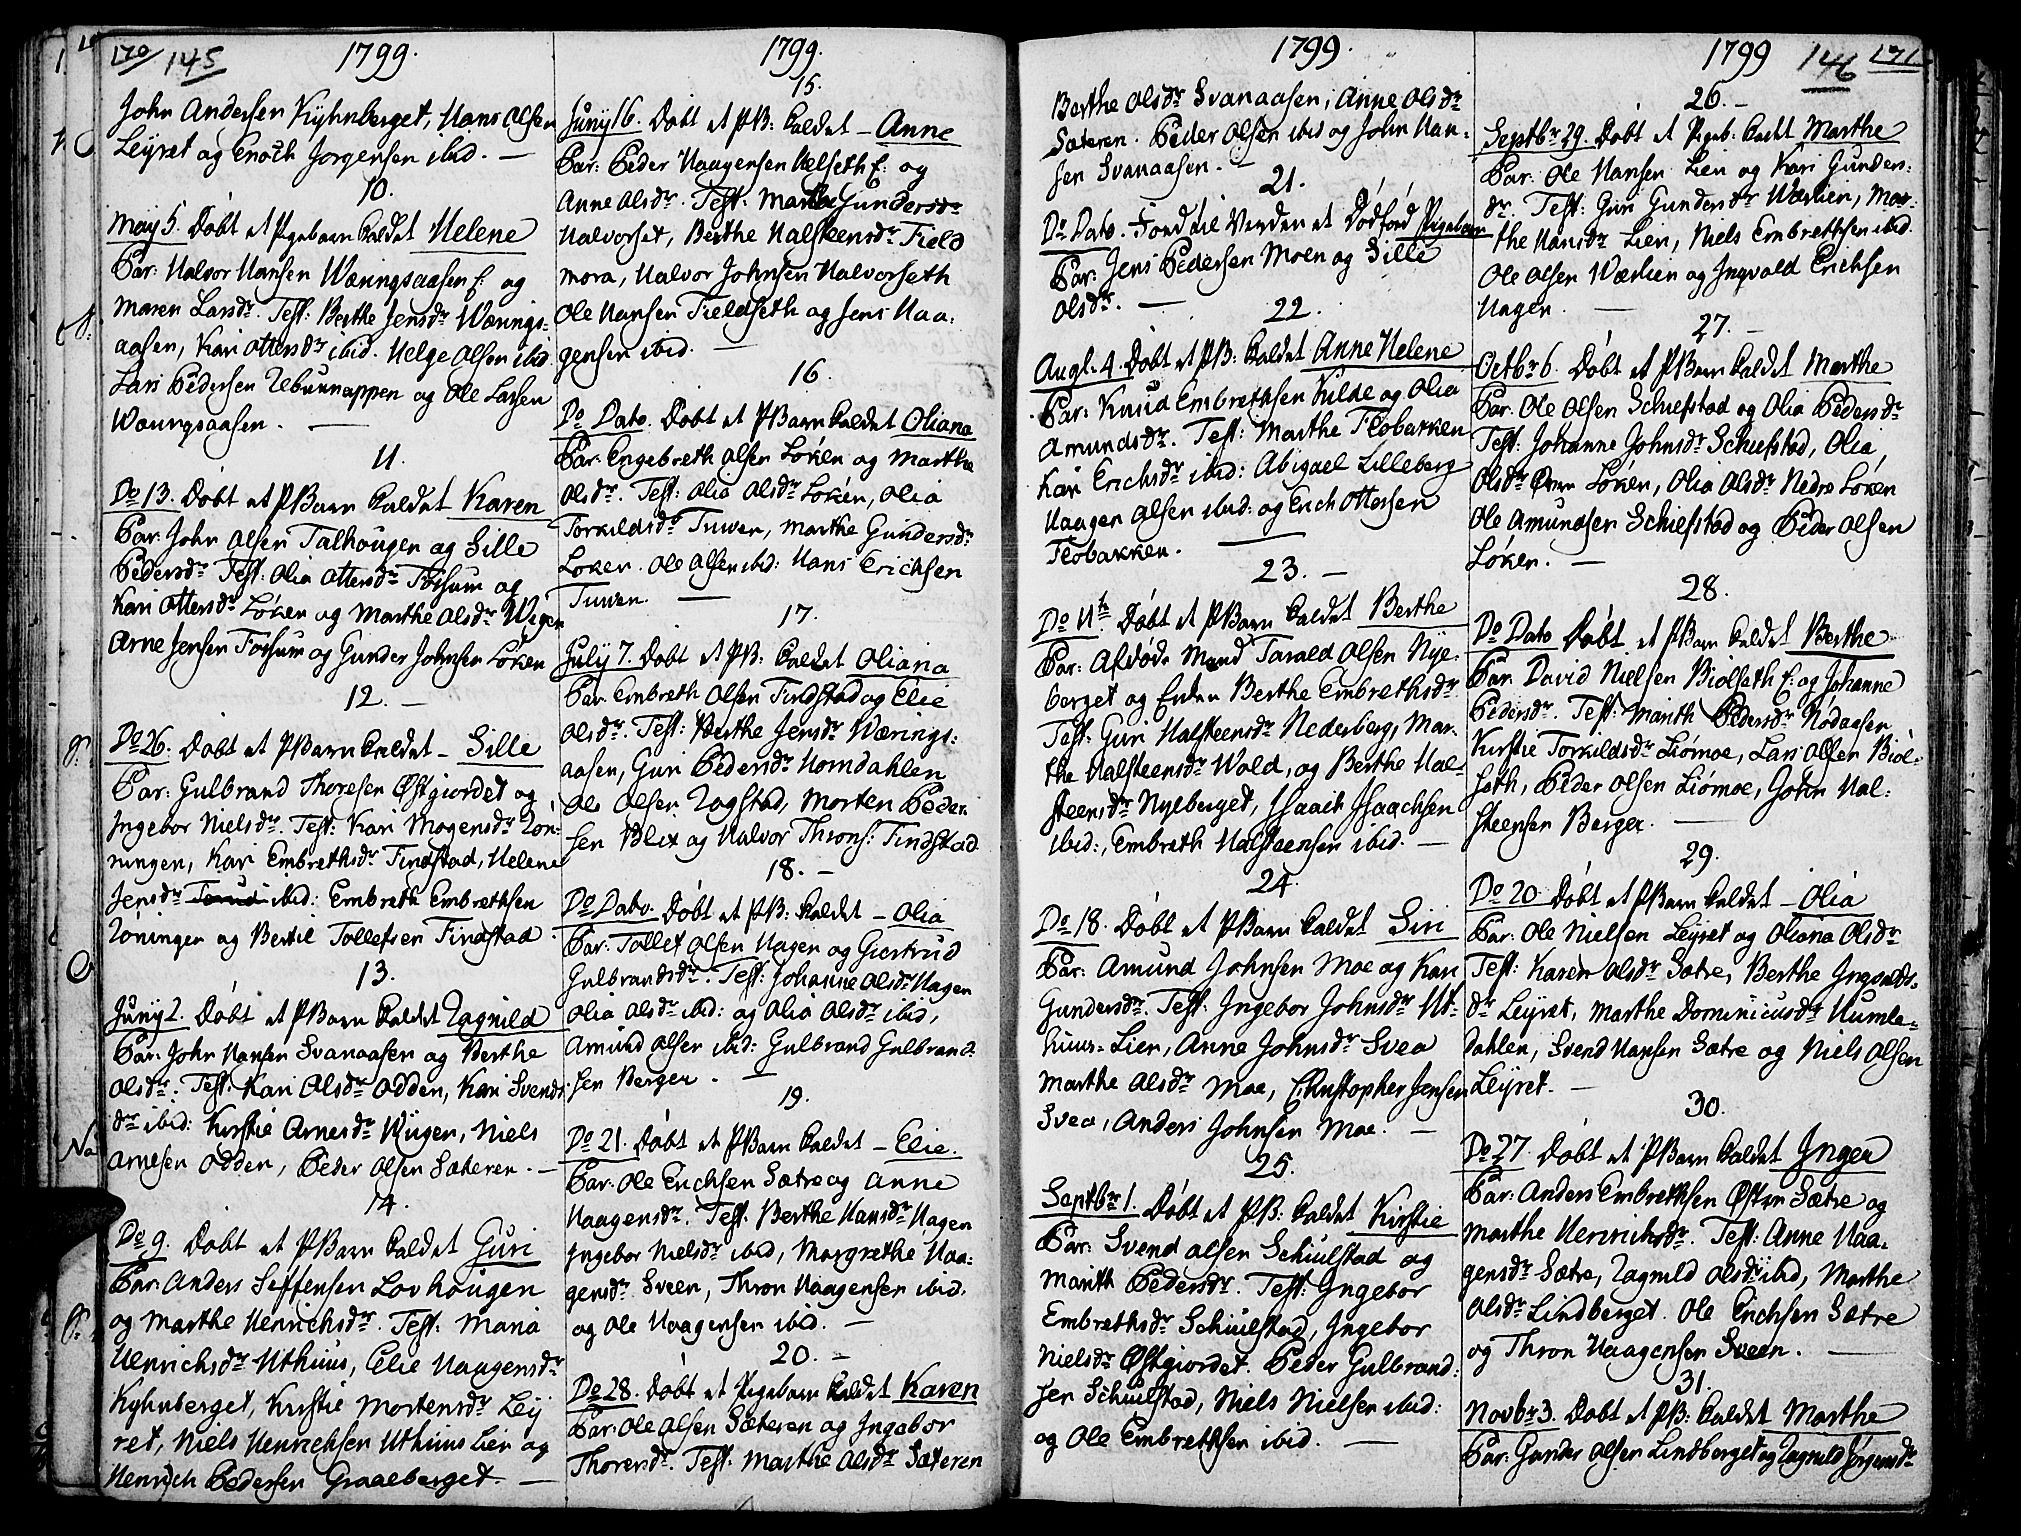 170 145 1799.
John Andersen Kyhnberget, Hans Olsen
Leyret og Enoch Jorgensen ibid. —
10.
May 5. Døbt et Pigebarn kaldet Helene
Par: Halvor Hansen Wæringsaasen E: og
Maren Larsdr. Test: Berthe Jensdr Wærings-
aasen, Kari Ottersdr ibid. Helge Olsen ibid.
Lars Pedersen og Ole Larsen
Wæringsaasen. —
11.
Do 13. Døbt et PBarn kaldet Karen
Par: John Olsen Talhougen og Sille
Pedersdr Test: Olia Ottersdr Fossum og
Kari Ottersdr Løken og Marthe Olsdr Wigen
Arne Jensen Fossum og Gunder Johnsen Løken
12. —
Do 26. Døbt et PBarn kaldet — Sille
Par: Gulbrand Thoresen Østgiordet og
Ingebor Nielsdr. Test: Kari Mogensdr Røn-
ningen, Kari Embrethsdr Findstad, Helene
Jensdr ibid: Embreth Embrethsen
Røningen og Bertil Tollefsen Findstad.
13.
Juny 2. Døbt et PBarn kaldet Ragnild
Par: John Hansen Svanaasen og Berthe
Olsdr: Test: Kari Olsdr Odden, Kari Svends-
dr ibid: Kirstie Arnesdr Wiigen, Niels
Arnesen Odden, Peder Olsen Sæteren. —
14.
Do 9. Døbt et PBarn kaldet Guri
Par: Anders Seffensen Lovhougen
og Marthe Henrichsdr. Test: Maria
Henrichsdr Uthuus, Elie Haagensdr
Kyhnberget, Kirstie Mortensdr Ley
ret, Niels Henrichsen Uthuus Lier og
Henrich Pedersen Graaberget. —
1799.
15.
Juny 16. Døbt et PB: kaldet — Anne
Par: Peder Haagensen Helseth E: og
Anne Olsdr. Test: Marthe Gundersdr
Halvorset, Berthe Halsteensdr Field
mora, Halvor Johnsen Halvorseth
Ole Hansen Fieldseth og Jens Haa:
gensen ibid. —
16.
Do Dato. Døbt et PBarn kaldet Oliana
Par: Engebreth Olsen Løken og Marthe
Olsdr. Test: Olia Olsdr Løken, Olia
Torkildsdr Tuwen, Marthe Gundersdr
Løken. Ole Olsen ibid: Hans Erichsen
Tuwen. —
17.
July 7. Døbt et PB: kaldet Oliana
Par: Embreth Olsen Findstad og Elie
Olsdr. Test: Berthe Jensdr Wærings:
aasen, Guri Pedersdr Homdahlen
Ole Olsen Rogstad, Morten Peder
sen Blix og Halvor Throns: Findstad
18. —
Do Dato. Døbt et PB: kaldet — Olia
Par: Tollef Olsen Hagen og Giertrud
Gulbrandsdr. Test: Johanne Olsdr Hagen
Olia Olsdr ibid: og Olia Olsdr ibid,
Amund Olsen ibid: Gulbrand Gulbrand-
sen Berger. —
19.
Do 21. Døbt et PBarn kaldet — Elie.
Par: Ole Erichsen Sætre og Anne
Haagensdr. Test: Berthe Hansdr Hagen
Ingebor Nielsdr ibid, Margrethe Haa:
gensdr Sveen, Thron Haagensen ibid.
og Ole Haagensen ibid. —
20. —
Do 28. Døbt et Pigebarn kaldet Karen
Par: Ole Olsen Sæteren og Ingebor
Thoresdr. Test: Marthe Olsdr Sæteren
1799.
Berthe Olsdr Svanaasen, Anne Olsdr
Sæteren. Peder Olsen ibid og John Han-
sen Svanaasen. —
21.
Do Dato. Fød til Verden et Dødfød Pigebarn
Par: Jens Pedersen Moen og Sille
Olsdr. —
22.
Augl. 4. Døbt et PB: kaldet Anne Helene
Par: Knud Embrethsen Kilde og Olia
Amundsdr. Test: Marthe Flobakken
Kari Erichsdr ibid: Abigael Lilleberg
Haagen Olsen ibid: og Erich Ottersen
Flobakken. —
23. —
Do 11te. Døbt et PBarn kaldet Berthe
Par: Afdøde Mand Tarald Olsen Nye-
berget og Enken Berthe Embrethsdr
Test: Guri Halsteensdr Nederberg, Mar-
the Halsteensdr Wold, og Berthe Hal-
steensdr Nyeberget, Isaach Isaachsen
ibid:, Embreth Halsteensen ibid. —
24.
Do 18. Døbt et PBarn kaldet Siri
Par: Amund Johnsen Moe og Kari
Gundersdr. Test: Ingebor Johnsdr Ut-
huus-Lien, Anne Johnsdr Svea
Marthe Olsdr Moe, Christopher Jensen
Svea, Anders Johnsen Moe. —
25.
Septbr 1. Døbt et PB: kaldet Kirstie
Par: Svend Olsen Schiulstad og
Marith Pedersdr. Test: Ingebor
Embrethsdr Schiulstad, Ingebor
Nielsdr Østgiordet. Peder Gulbrand:
sen Schiulstad, Niels Nielsen ibid:
og Ole Embrethsen ibid. —
1799 146 171
26. —
Septbr 29. Døbt et Pigeb: kaldt Marthe
Par: Ole Hansen Lien og Kari Gunders:
dr. Test: Guri Gundersdr Wærlien, Mar-
the Hansdr Lien, Niels Embrethsen ibid.
Ole Olsen Wærlien og Ingvald Erichsen
Hagen. —
27. —
Octbr 6. Døbt et PBarn kaldet Marthe
Par: Ole Olsen Schiefstad og Olia Pedersdr
Test: Johanne Johnsdr Schiefstad, Olia,
Olsdr Løken, Olia Olsdr Nedre Løken
Ole Amundsen Schiefstad og Peder Olsen
Løken. —
28.
Do Dato Døbt et PBarn kaldet Berthe
Par: David Nielsen Biølseth E: og Johanne
Pedersdr. Test: Marith Pedersdr Nødaasen
Kirstie Torkildsdr Liømoe, Lars Olsen Biøl-
seth, Peder Olsen Liømoe, John Hal:
steensen Berger. —
29.
Do 20 Døbt et PBarn kaldet — Olia
Par: Ole Nielsen Leyret og Oliana Olsdr
Test: Karen Olsdr Sætre, Berthe Ingvalds-
dr Leyret, Marthe Dominicusdr Humle-
dahlen, Svend Hansen Sætre og Niels Olsen
Leyret. —
30.
Do 27. Døbt et PBarn kaldet Inger
Par: Anders Embrethsen Østre Sætre og
Marthe Henrichsdr. Test: Anne Haa-
gensdr Sætre, Ragnild Olsdr ibid, Marthe
Olsdr Lindberget. Ole Erichsen Sætre
og Thron Haagensen Sveen. —
31.
Novbr 3. Døbt et PB: kaldet Marthe
Par: Gunder Olsen Lindberget og Ragnild Jørgensdr